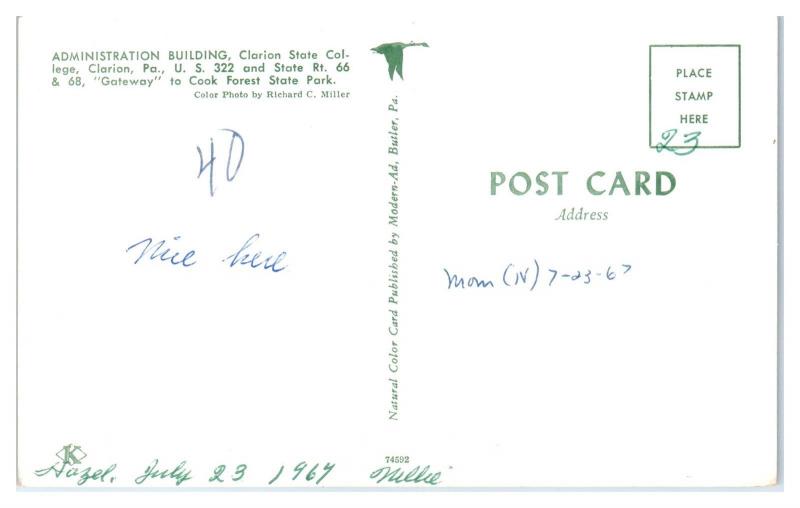 ADMINISTRATION BUILDING, Clarion State Col-
lege, Clarion, Pa., U. S. 322 and State Rt. 66
& 68, "Gateway" to Cook Forest State Park.
Color Photo by Richard C. Miller
40
Nice here
K
Hazel, July 23 1967 Millie
Natural Color Card Published by Modern-Ad, Butler, Pa.
74592
PLACE
STAMP
HERE
23
POST CARD
Address
Mom (N) 7-23-67